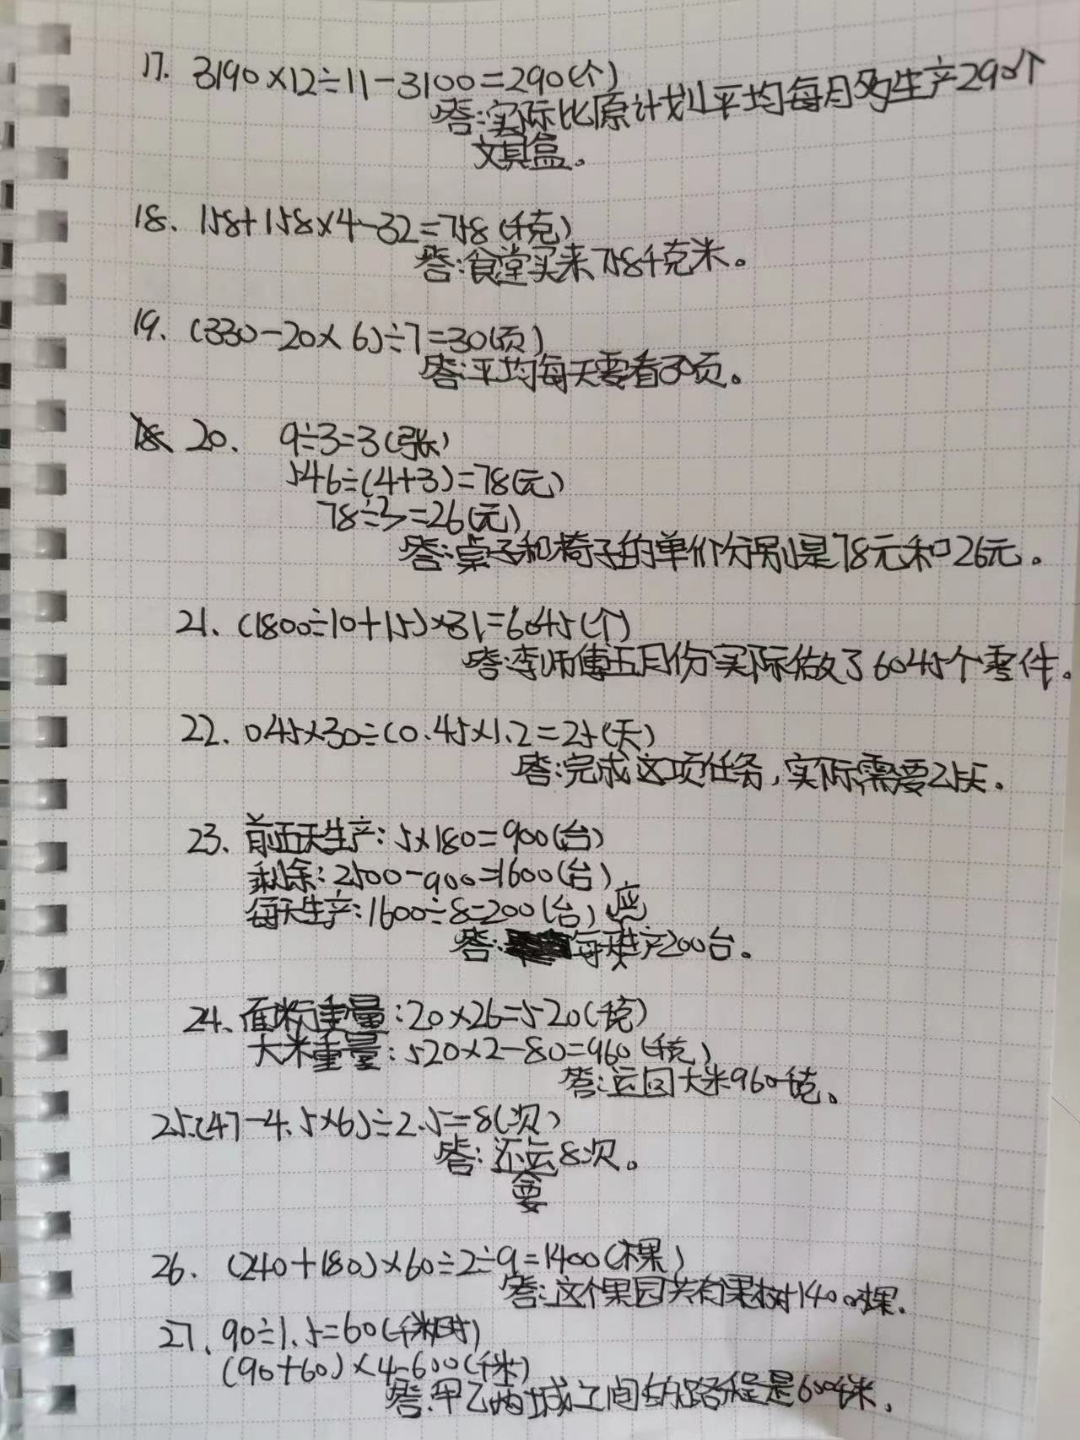 17. 3190×12÷11-3100=290(个)
答:实际比原计划平均每月多生产290个
文具盒。
18. 158+158×4-32=758(千克)
答:食堂买来758千克米。
19. (330-20×6)÷7=30(页)
答:平均每天要看30页。
20. 9÷3=3(张)
546÷(4+3)=78(元)
78÷3=26(元)
答:桌子和椅子的单价分别是78元和26元。
21. (1800÷10+15)×31=6045(个)
答:李师傅五月份实际做了6045个零件。
22. 0.45×30÷(0.45×1.2=25(天)
答:完成这项任务,实际需要25天。
23. 前五天生产:5×180=900(台)
剩余:2500-900=1600(台)
每天生产:1600÷8=200(台)应
答:每天生产200台。
24. 面粉重量:20×26=520(千克)
大米重量:520×2-80=960(千克)
答:运回大米960千克。
25.(47-4.5×6)÷2.5=8(次)
答:还运8次。
要
26. (240+180)×60÷2÷9=1400(棵)
答:这个果园共有果树1400棵.
27. 90÷1.5=60(千米/时)
(90+60)×4=600(千米)
答:甲乙两城之间的路程是600千米.